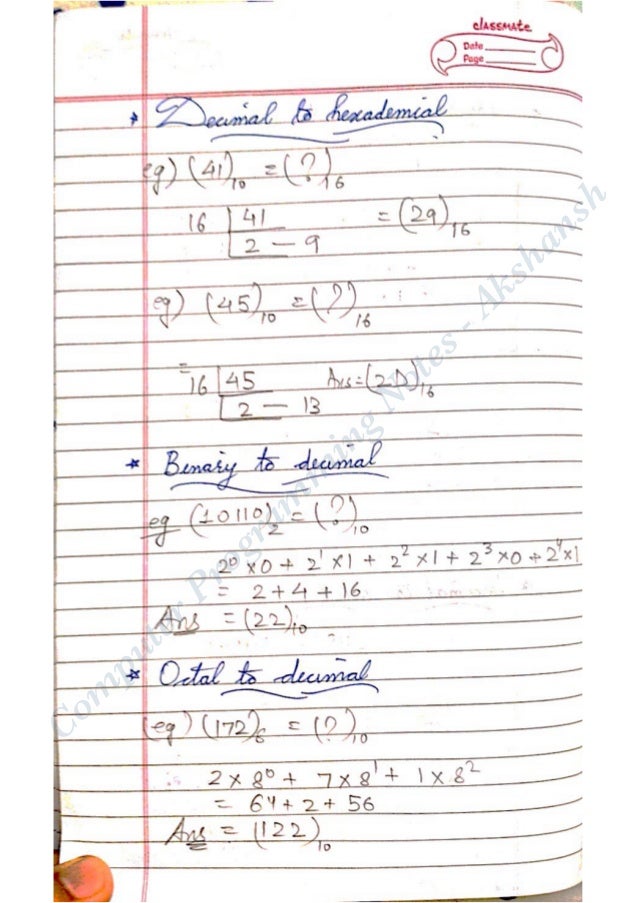 classmate
Date
Page
* Decimal to hexademial
eg) (41)₁₀ = (?)₁₆
16 | 41 = (29)₁₆
2 — 9
eg) (45)₁₀ = (?)₁₆
= 16 | 45 Ans = (2D)₁₆
2 — 13
* Benary to decimal
eg (10110)₂ = (?)₁₀
2⁰ x 0 + 2¹ x 1 + 2² x 1 + 2³ x 0 + 2⁴ x 1
= 2 + 4 + 16
Ans = (22)₁₀
* Octal to decimal
(eg) (172)₈ = (?)₁₀
2 x 8⁰ + 7 x 8¹ + 1 x 8²
= 64 + 2 + 56
Ans = (122)₁₀
Computer Programming Notes - Akshansh